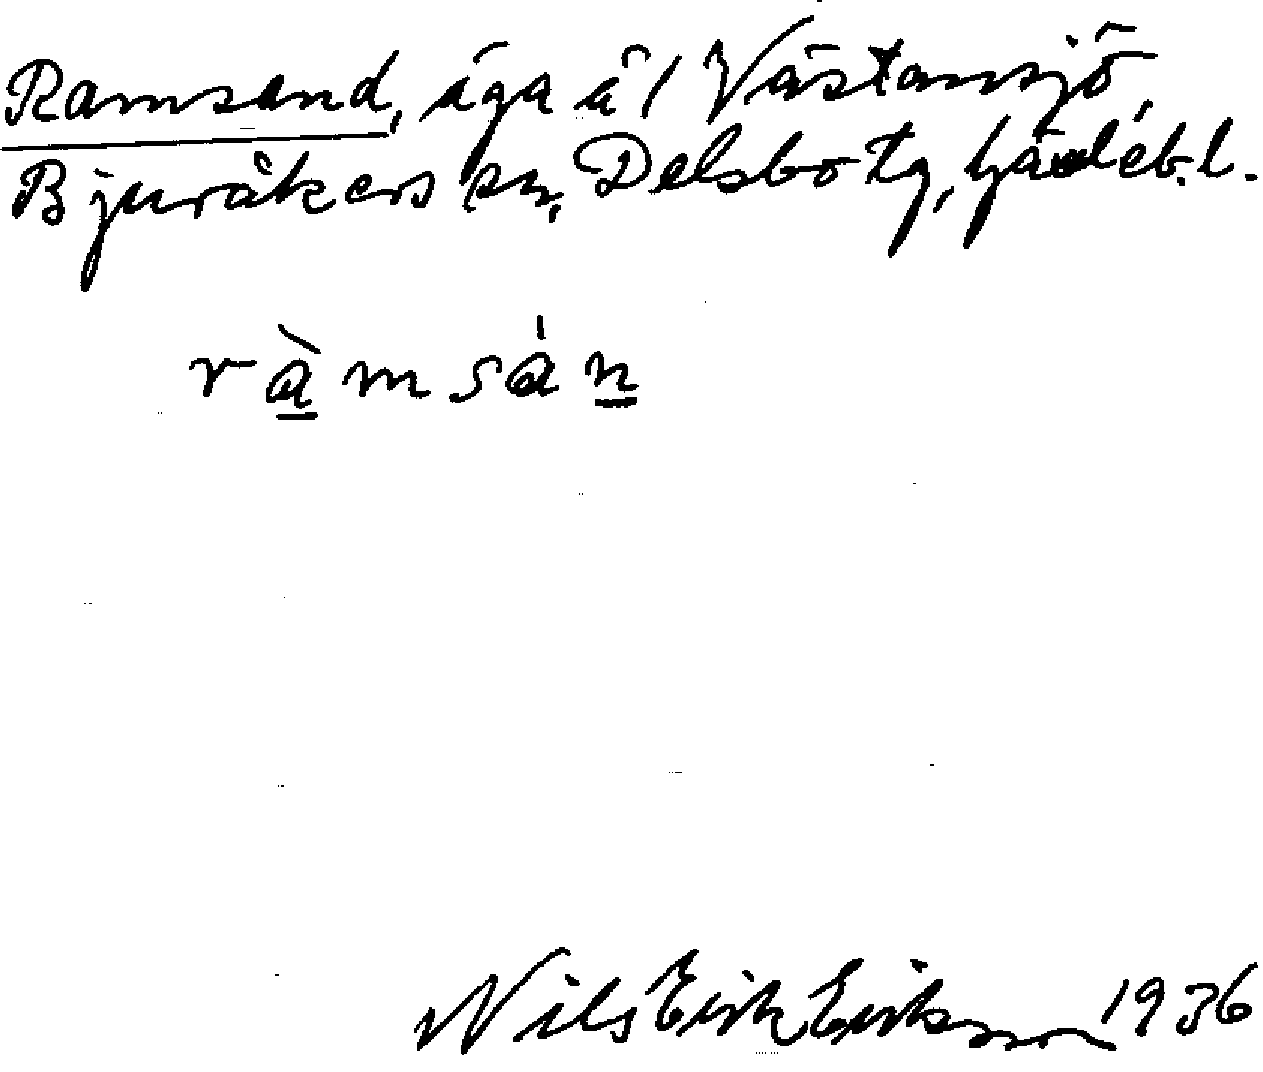 Ramsand, äga å 1 Västansjö,
Bjuråkers sn, Delsbo tg, Gävleb.l.
ràmsán
Nils Erik Eriksson 1936